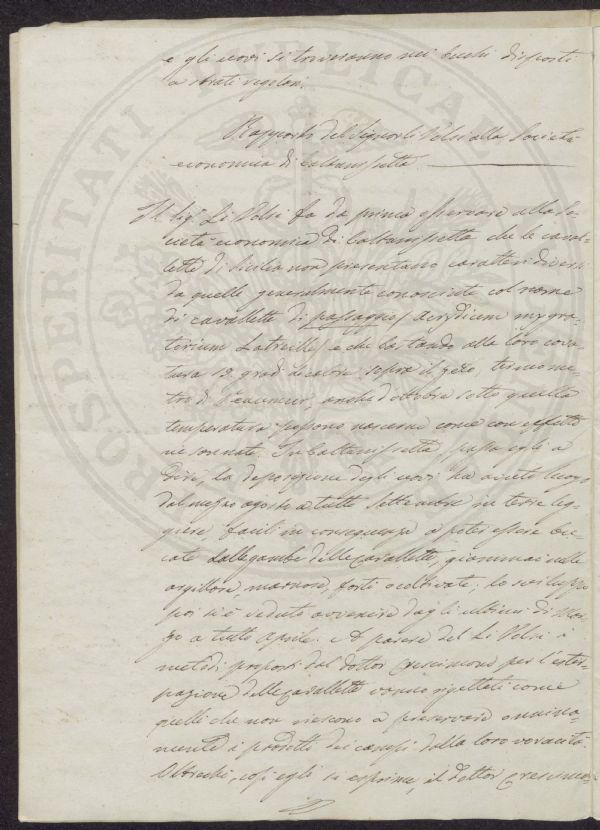 e gli uovi si troveranno nei buchi disposti
a strati regolari.
Rapporto del Signor Li Volsi alla Società
economica di Caltanissetta
Il Sig. Li Volsi fa da prima osservare alla So-
cietà economica di Caltanissetta che le caval-
lette di Sicilia non presentano caratteri diversi
da quelle generalmente conosciute col nome
di cavallette di passaggio / Acrydium mygra-
torium Latreille / e che bastando alla loro cova-
tura 12 gradi di calore sopra il zero, termome-
tro di Reaumur, anche d'ottobre sotto quella
temperatura possono nascerne come con effetto
ne son nati. In Caltanissetta, passa egli a
dire, la deposizione degli uovi ha avuto luogo
dal mezzo agosto a tutto Settembre in terre leg-
giere facili in conseguenza a poter essere bu-
cate dalle gambe delle Cavallette, giammai nelle
argillose, marnose, forti o coltivate; lo sviluppo
poi si è veduto avvenire dagli ultimi di Mar-
zo a tutto Aprile. A parere del Li Volsi i
metodi proposti dal dottor Crescimone per l'estir-
pazione delle Cavallette vanno rigettati come
quelli che non riescono a preservare onnina-
mente i prodotti dei campi dalla loro voracità.
Oltreché, così egli si esprime, il dottor Crescimo-
PROSPERITATI PUBLICAE